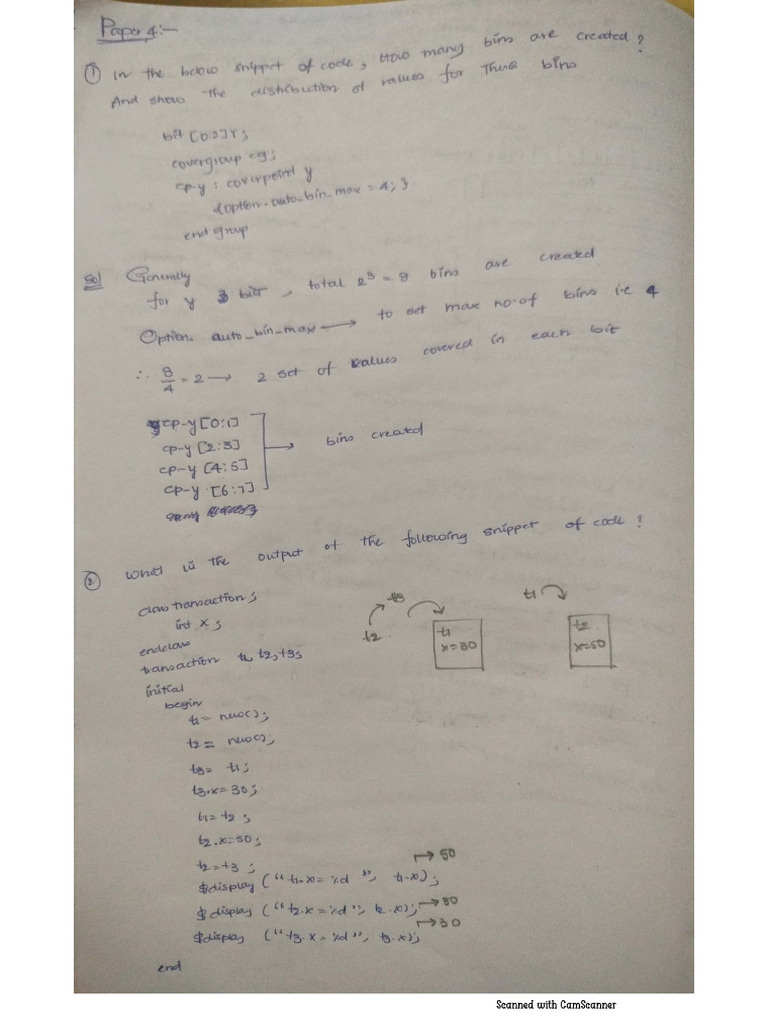 Paper 4:-
① In the below snippet of code, How many bins are created?
And show the distribution of values for these bins
bit [0:2] Y;
covergroup cg;
cp-y : coverpoint y
{option.auto_bin_max = 4; }
end group
Sol Generally
for y 3 bit, total 2³ = 8 bins are created
Option. auto_bin_max → to set max no. of bins i.e 4
∴ 8/4 = 2 → 2 set of values covered in each bit
cp-y [0:1]
cp-y [2:3]
→ bins created
cp-y [4:5]
cp-y [6:7]
② What is the output of the following snippet of code?
class transaction;
int x;
endclass
transaction t1, t2, t3;
initial
begin
t1 = new();
t2 = new();
t3 = t1;
t3.x = 30;
t1 = t2;
t2.x = 50;
t2 = t3;
$display ("t1.x = %d", t1.x); → 50
$display ("t2.x = %d", t2.x); → 30
$display ("t3.x = %d", t3.x); → 30
end
t3
t2
t1
x=30
t1
t2
x=50
Scanned with CamScanner